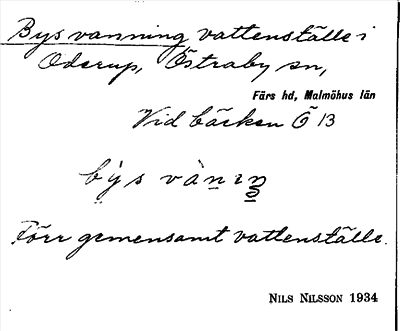 Bys vanning vattenställe i
Oderup, Östraby sn,
Färs hd, Malmöhus län
Vid bäcken Ö 13
Förr gemensamt vattenställe.
NILS NILSSON 1934